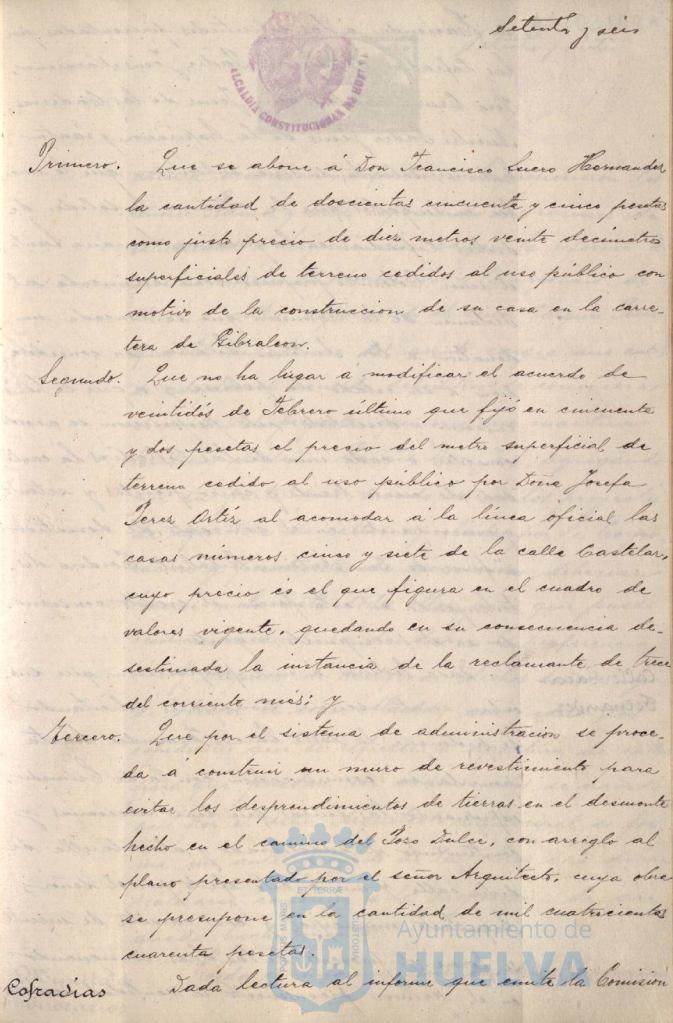 Setenta y seis
ALCALDIA CONSTITUCIONAL DE HUELVA
Primero. Que se abone á Don Francisco Suero Hernandez
la cantidad de doscientas cincuenta y cinco pesetas
como justo precio de diez metros veinte decímetros
superficiales de terreno cedidos al uso público con
motivo de la construccion de su casa en la carre-
tera de Gibraleon.
Segundo. Que no ha lugar a modificar el acuerdo de
veintidós de Febrero último que fijó en cincuenta
y dos pesetas el precio del metro superficial de
terreno cedido al uso público por Doña Josefa
Perez Ortíz al acomodar á la línea oficial las
casas números cinco y siete de la calle Castelar,
cuyo precio és el que figura en el cuadro de
valores vigente, quedando en su consecuencia de-
sestimada la instancia de la reclamante de trece
del corriente més; y
Tercero. Que por el sistema de administracion se proce-
da á construir un muro de revestimiento para
evitar los desprendimientos de tierras en el desmonte
hecho en el camino del Pozo Dulce, con arreglo al
plano presentado por el señor Arquitecto, cuya obra
se presupone en la cantidad de mil cuatrocientas
cuarenta pesetas.
Cofradias Dada lectura al informe que emite la Comisión
Ayuntamiento de
HUELVA